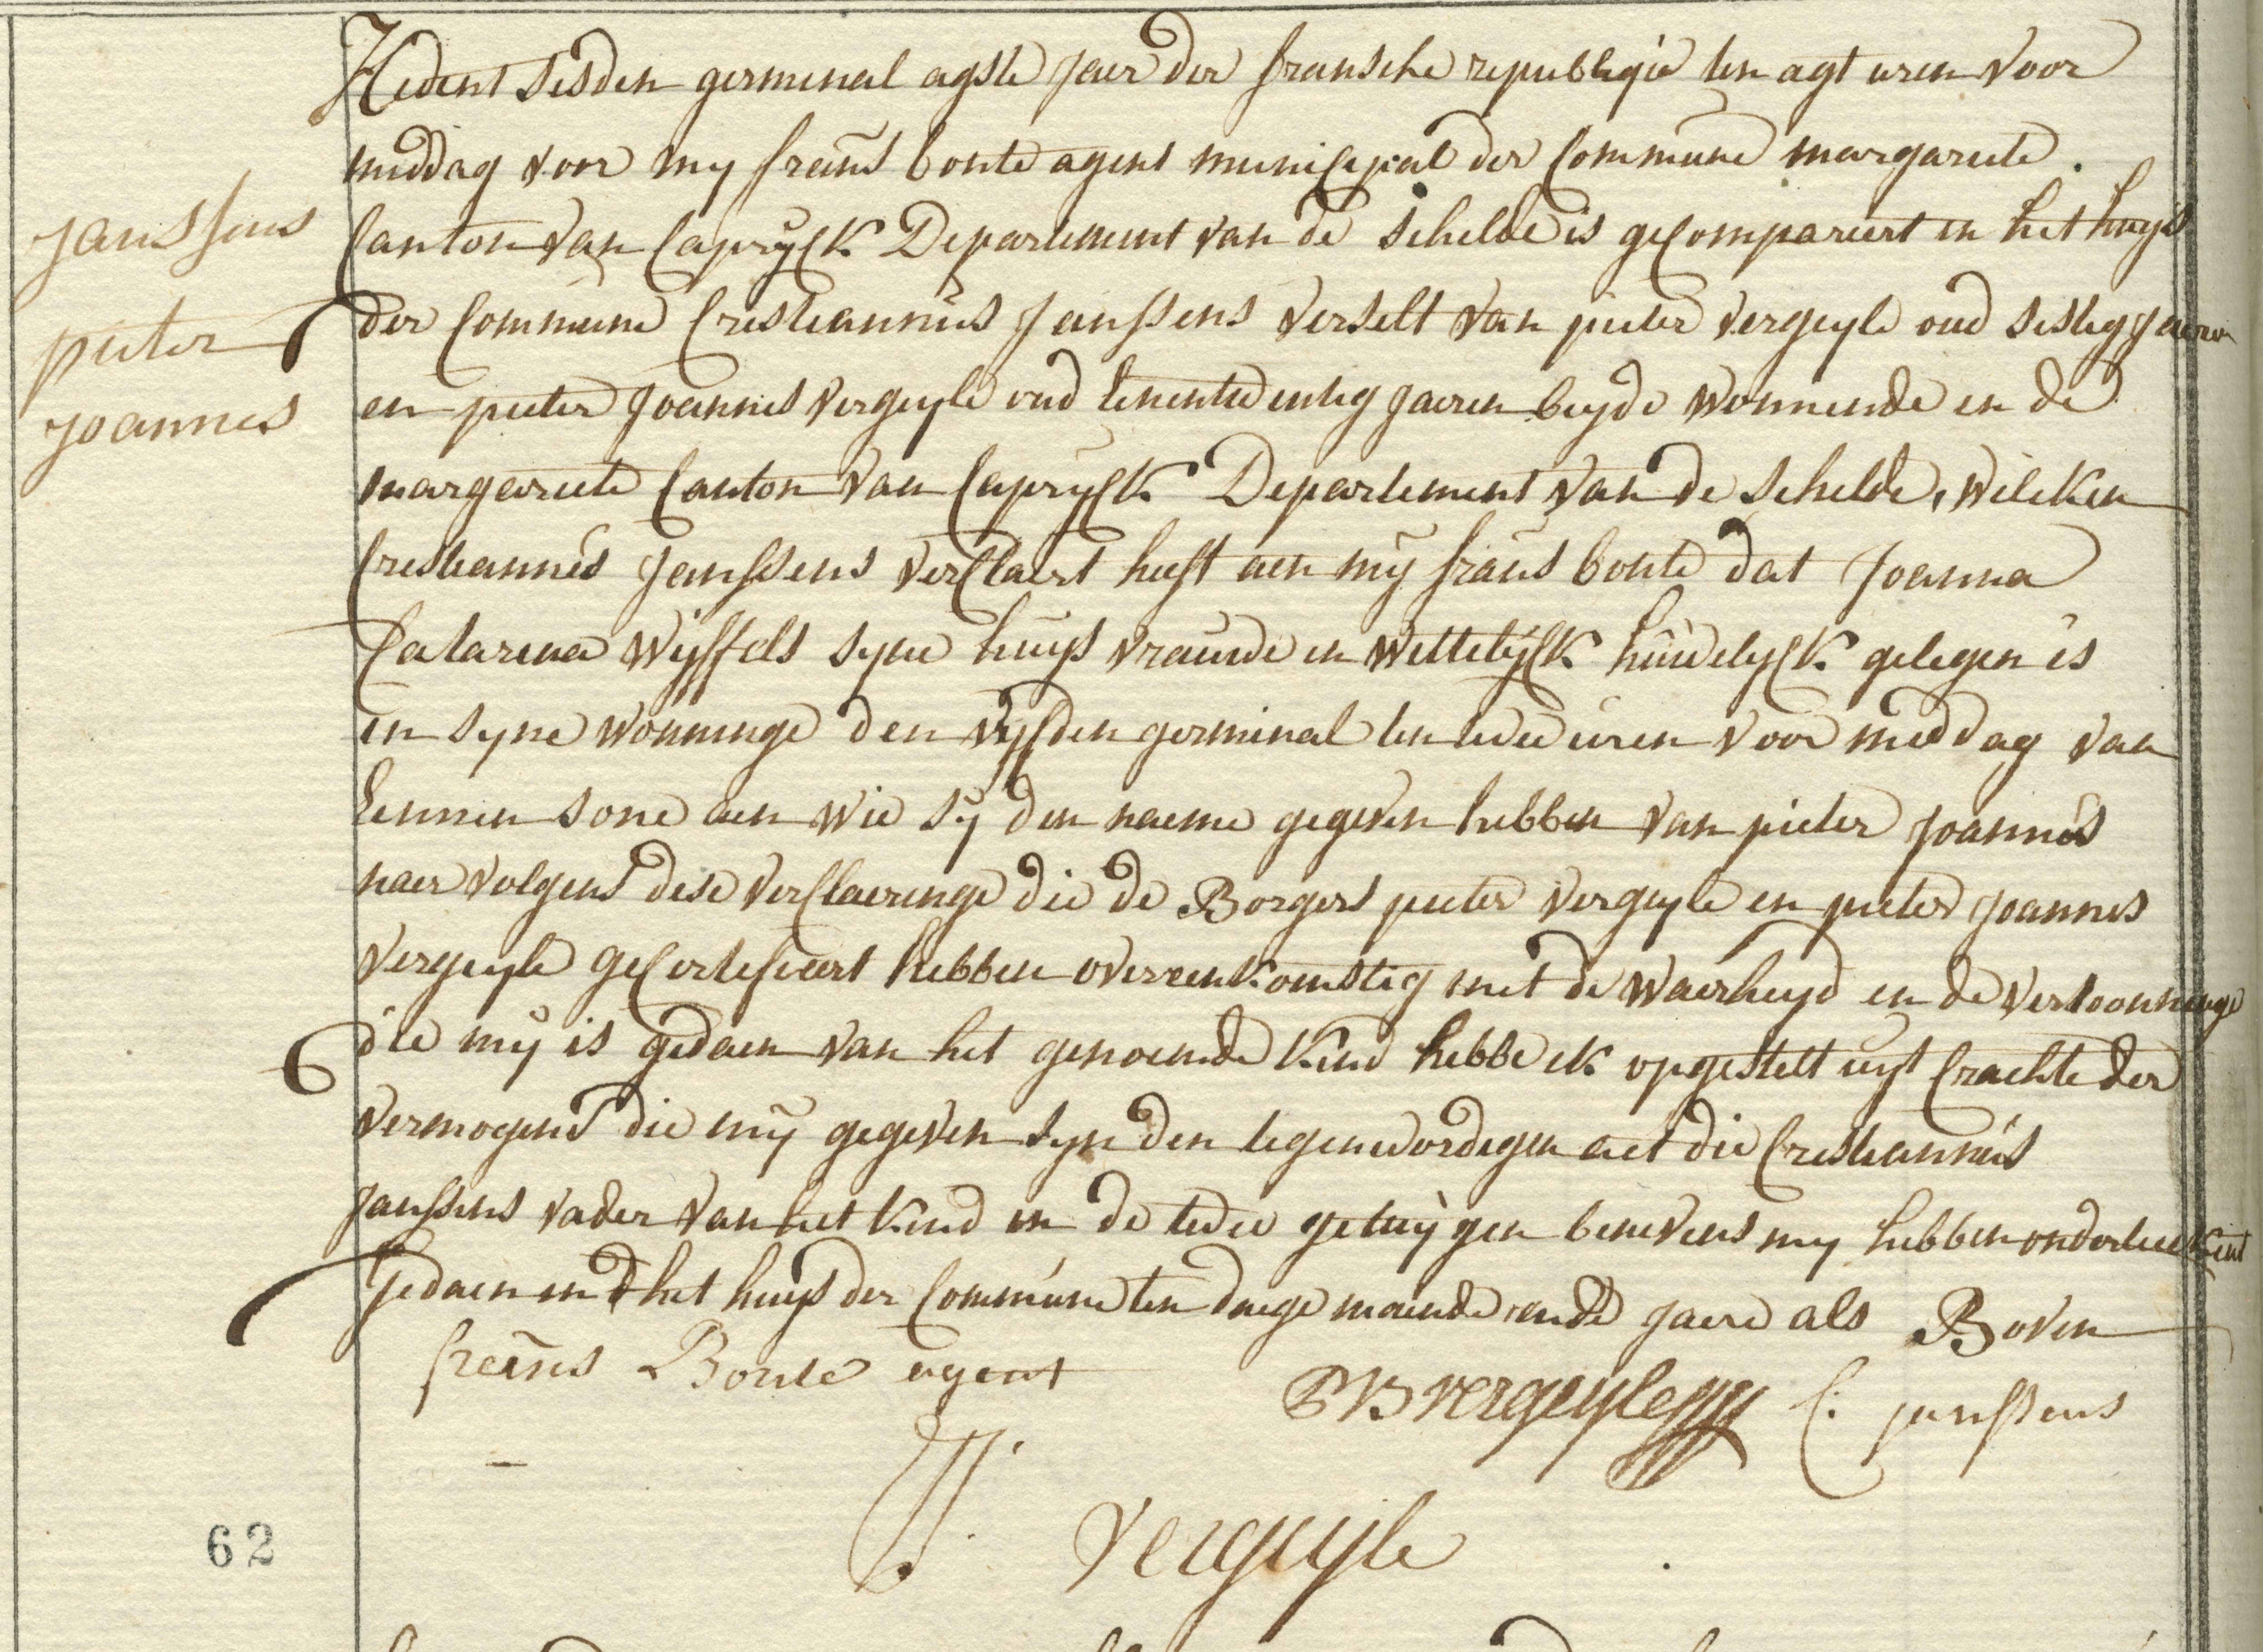 Janssens
pieter
joannes
Hedent sesden germinal agste jaer der fransche republique ten agt uren voor
middag voor my frans bonte agent municipal der Commune margariete
Canton van Capryck Departement van de Schelde is gecompareert in het huys
der Commune Cristiannus Janssens verselt van pieter vergeyle oud sestig jaeren
en pieter joannes vergeyle oud jaeren beyde wonnende en de
margariete Canton van Capryck Departement van de Schelde, wilcken
Cristiannus Janssens verClaert heeft aen my frans bonte dat Joanna
Catarina wyffels syne huys vrauwe in wettelyck huwelyck gelegen is
in syne wonninge den vyfden germinal ten twee uren voor middag van
eennen sone aen wie sy den naeme gegeven hebben van pieter joannes
naer volgens dese verClaeringe die de Borgers pieter vergeyle en pieter joannes
vergeyle geCertefieert hebben overeenkomstig met de waerheyd en de vertoonninge
die my is gedaen van het genoemde kind hebbe ik opgestelt uyt Crachte der
vermogens die my gegeven syn den tegenwordigen act die Cristiannus
Janssens vader van het kind en de twee getuygen benevens my hebben onderteekent
Gedaen in het huys der Commune ten daege maende ende jaere als Boven
frans Bonte agent
PB vergeyle C: janssens
vergeyle
62